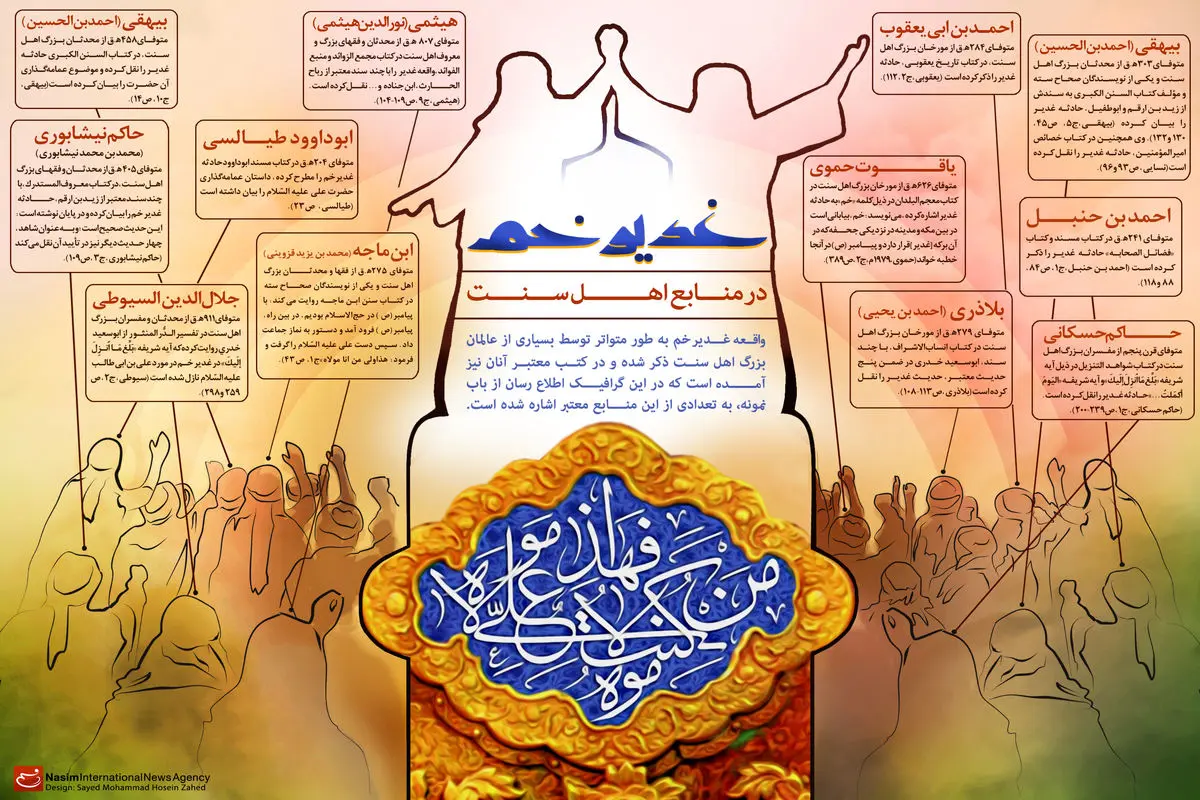 غدیر خم
در منابع اهل سنت
واقعه غدیرخم به طور متواتر توسط بسیاری از عالمان
بزرگ اهل سنت ذکر شده و در کتب معتبر آنان نیز
آمده است که در این گرافیک اطلاع رسان از باب
نمونه، به تعدادی از این منابع معتبر اشاره شده است.
من کنت مولاه فهذا علی مولاه
بیهقی (احمدبن الحسین)
متوفای ۳۰۳ه.ق از محدثان بزرگ اهل
سنت و یکی از نویسندگان صحاح سته
و مؤلف کتاب السنن الکبری به سندش
از زیدبن ارقم و ابوطفیل، حادثه غدیر
را بیان کرده (بیهقی،ج۵، ص۴۵،
۱۳۰و۱۳۲). وی همچنین در کتاب خصائص
امیرالمؤمنین، حادثه غدیر را نقل کرده
است (نسایی، ص۹۳و۹۶).
احمدبن ابی یعقوب
متوفای۲۸۴ه.ق از مورخان بزرگ اهل
سنت، در کتاب تاریخ یعقوبی، حادثه
غدیر را ذکر کرده است (یعقوبی،ج۲، ۱۱۲).
یاقوت حموی
متوفای۶۲۶ه.ق از مورخان بزرگ اهل سنت در
کتاب معجم البلدان در ذیل کلمه «خم»به حادثه
غدیر اشاره کرده، می‌نویسد: خم، بیابانی است
در بین مکه و مدینه در نزدیکی جحفه که در
آن برکه (غدیر) قرار دارد و پیامبر (ص) در آنجا
خطبه خواند(حموی،۱۹۷۹م،ج۲،ص۳۸۹).
احمد بن حنبل
متوفای ۲۴۱ه.ق در کتاب مسند و کتاب
«فضائل الصحابه» حادثه غدیر را ذکر
کرده است (احمد بن حنبل،ج۱، ص۸۴،
۸۸ و۱۱۸).
بلاذری (احمد بن یحیی)
متوفای ۲۷۹ه.ق از مورخان بزرگ اهل
سنت در کتاب انساب الاشراف، با چند
سند، ابوسعید خدری در ضمن پنج
حدیث معتبر، حدیث غدیر را نقل
کرده است(بلاذری،ص۱۱۳-۱۰۸).
حاکم حسکانی
متوفای قرن پنجم از مفسران بزرگ اهل
سنت در کتاب شواهد التنزیل در ذیل آیه
شریفه «بَلِّغ مَا أُنزِلَ إِلَیکَ»و آیه شریفه «الیَومَ
أکمَلتُ...»حادثه غدیر را نقل کرده است.
(حاکم حسکانی،ج۱، ص۲۳۹-۲۰۰).
هیثمی (نورالدین هیثمی)
متوفای ۸۰۷ ه.ق از محدثان و فقهای بزرگ و
معروف اهل سنت در کتاب مجمع الزوائد و منبع
الفوائد، واقعه غدیر را با چند سند معتبر از رباح
الحارث، ابن جناده و... نقل کرده است.
(هیثمی،ج۹،ص۱۰۹-۱۰۴).
بیهقی (احمدبن الحسین)
متوفای۴۵۸ه.ق از محدثان بزرگ اهل
سنت، در کتاب السنن الکبری حادثه
غدیر را نقل کرده و موضوع عمامه‌گذاری
آن حضرت را بیان کرده است(بیهقی،
ج۱۰، ص۱۴).
ابوداوود طیالسی
متوفای ۲۰۴ه.ق در کتاب مسند ابوداوود حادثه
غدیرخم را مطرح کرده، داستان عمامه‌گذاری
حضرت علی علیه السّلام را بیان داشته است
(طیالسی، ص۲۳).
حاکم نیشابوری
(محمدبن محمد نیشابوری)
متوفای۴۰۵ه.ق از محدثان و فقهای بزرگ
اهل سنت، در کتاب معروف المستدرک، با
چند سند معتبر از زیدبن ارقم، حادثه
غدیر خم را بیان کرده و در پایان نوشته است:
این حدیث صحیح است؛ و به عنوان شاهد،
چهار حدیث دیگر نیز در تأیید آن نقل می‌کند
(حاکم نیشابوری،ج۳، ص۱۰۹).
ابن ماجه (محمد بن یزید قزوینی)
متوفای ۲۷۵ه.ق از فقها و محدثان بزرگ
اهل سنت و یکی از نویسندگان صحاح سته
در کتاب سنن ابن ماجه روایت می‌کند: با
پیامبر(ص) در حج‌الاسلام بودیم. در بین راه،
پیامبر (ص) فرود آمد و دستور به نماز جماعت
داد. سپس دست علی علیه السّلام را گرفت و
فرمود: هذا ولی من انا مولاه(ج۱، ص۴۳).
جلال الدین السیوطی
متوفای۹۱۱ه.ق از محدثان و مفسران بزرگ
اهل سنت در تفسیر الدُّر المنثور از ابوسعید
خدری روایت کرده که آیه شریفه «بَلِّغ مَا أُنزِلَ
إلَیکَ»در غدیر خم در مورد علی بن ابی طالب
علیه السّلام نازل شده است (سیوطی،ج۲، ص
۲۵۹ و۲۹۸).
NasimInternationalNewsAgency
Design: Sayed Mohammad Hosein Zahed